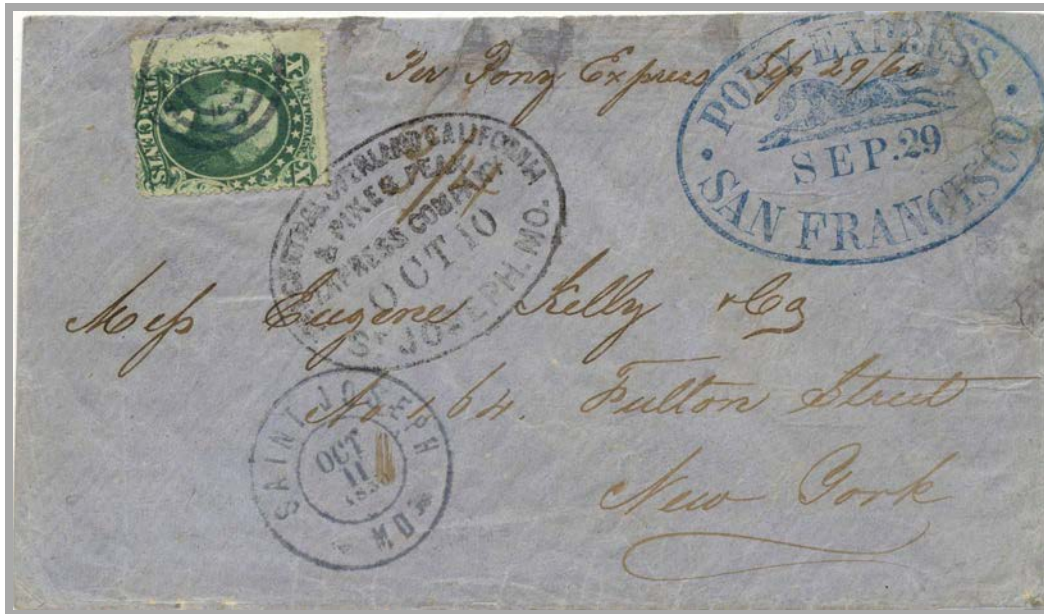 Per Pony Express Sep 29/60
PONY EXPRESS
SEP.29
SAN FRANCISCO
CENTRAL OVERLAND CALIFORNIA
& PIKES PEAK
EXPRESS COMPANY
OCT 10
ST JOSEPH. MO.
X
TEN CENTS
X
Mess Eugene Kelly & Co
No 164. Fulton Street
New York
SAINT JOSEPH
OCT
11
MO